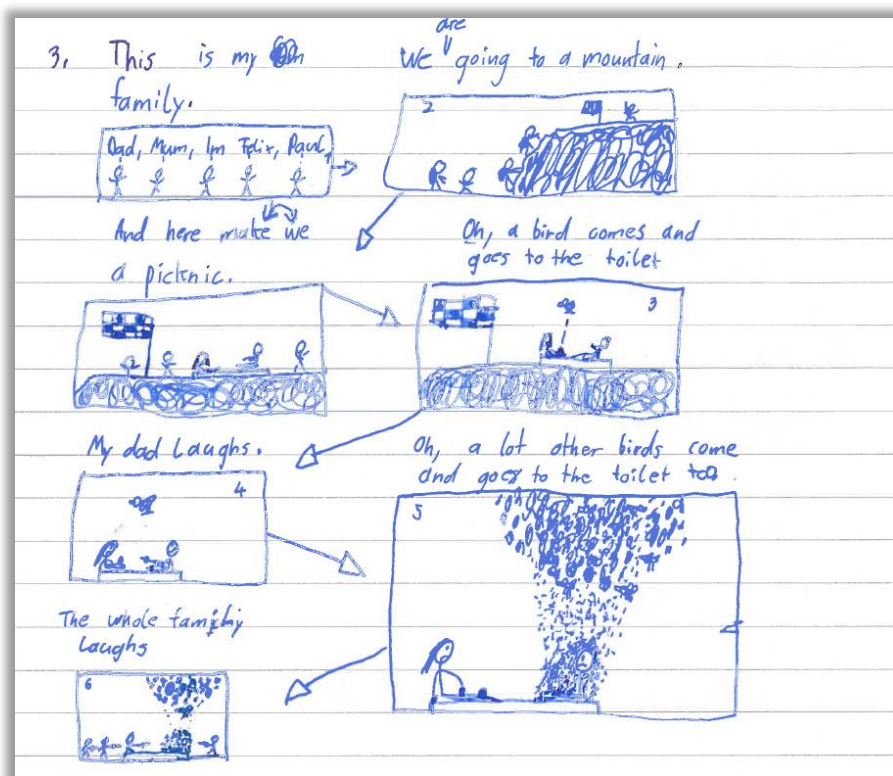 3. This is my
family.
Dad, Mum, Im Felix, Paul,
are
We going to a mountain.
2
And here make we
a picknic.
Oh, a bird comes and
goes to the toilet
3
My dad Laughs.
4
Oh, a lot other birds come
and goes to the toilet too
5
The whole family
Laughs
6